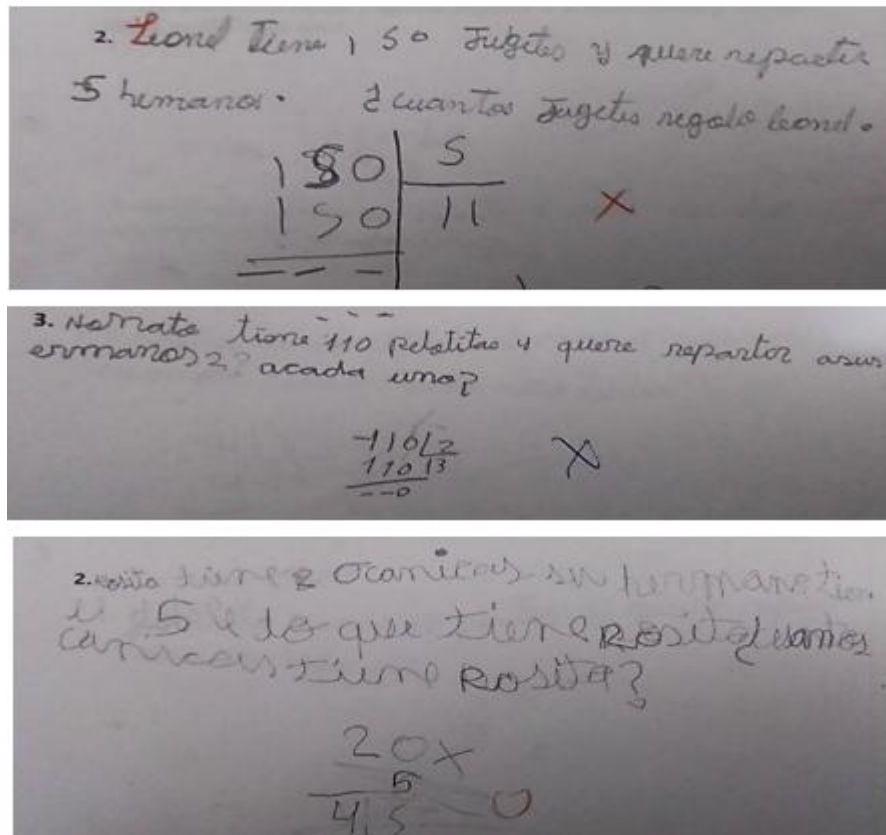 2. Leonel Tiene 150 Jugetes y quere repartir
5 hemanos. ¿ cuantos Jugetes regalo leonel.
150 5
150 11
X
3. tiene 110 pelotitas y quere repartor asus
ermanos 2? acada uno?
-110 2
110 13
--0
X
2. Rosita tiene 20canicas su hermana tien
5 lo que tiene ROSita
canicas tiene ROSita?
20x
5